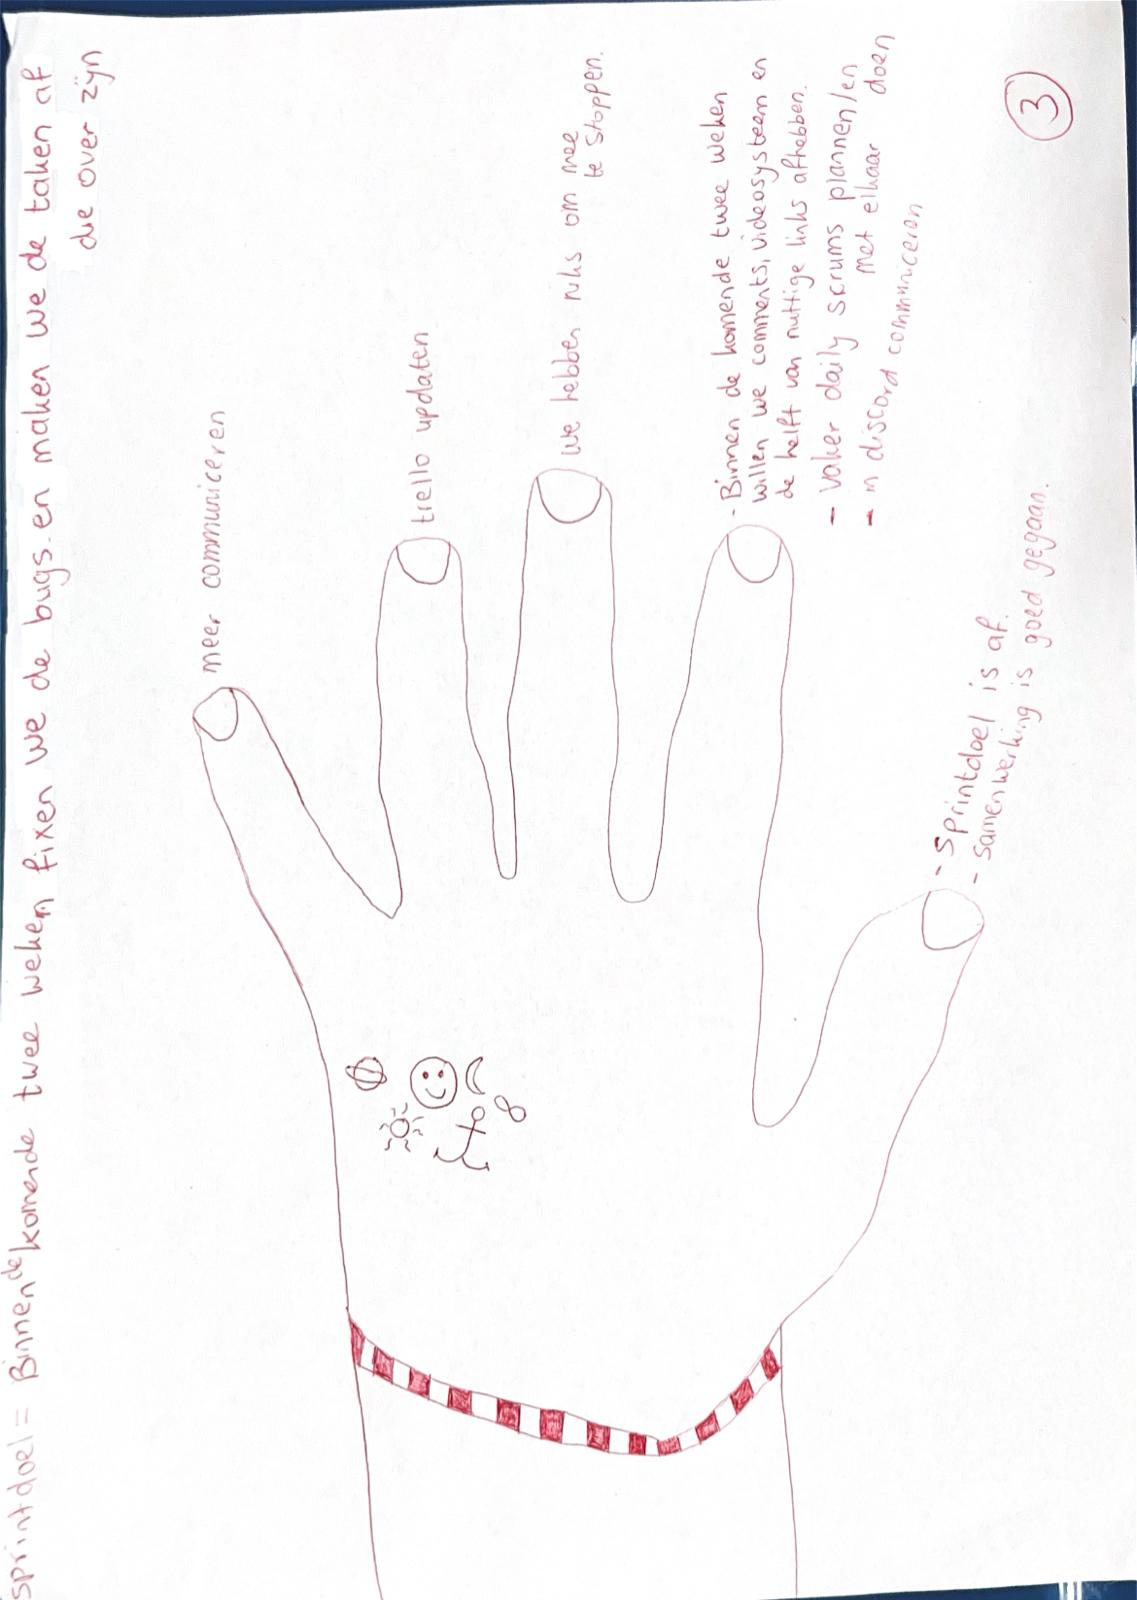 sprintdoel = Binnen de komende twee weken fixen we de bugs en maken we de taken af
die over zijn
meer communiceren
trello updaten
we hebben niks om mee
te stoppen.
- Binnen de komende twee weken
willen we comments, videosysteem en
de helft van nuttige links afhebben.
- vaker daily scrums plannen/en
met elkaar doen
- in discord communiceren
- Sprintdoel is af.
- Samenwerking is goed gegaan.
3